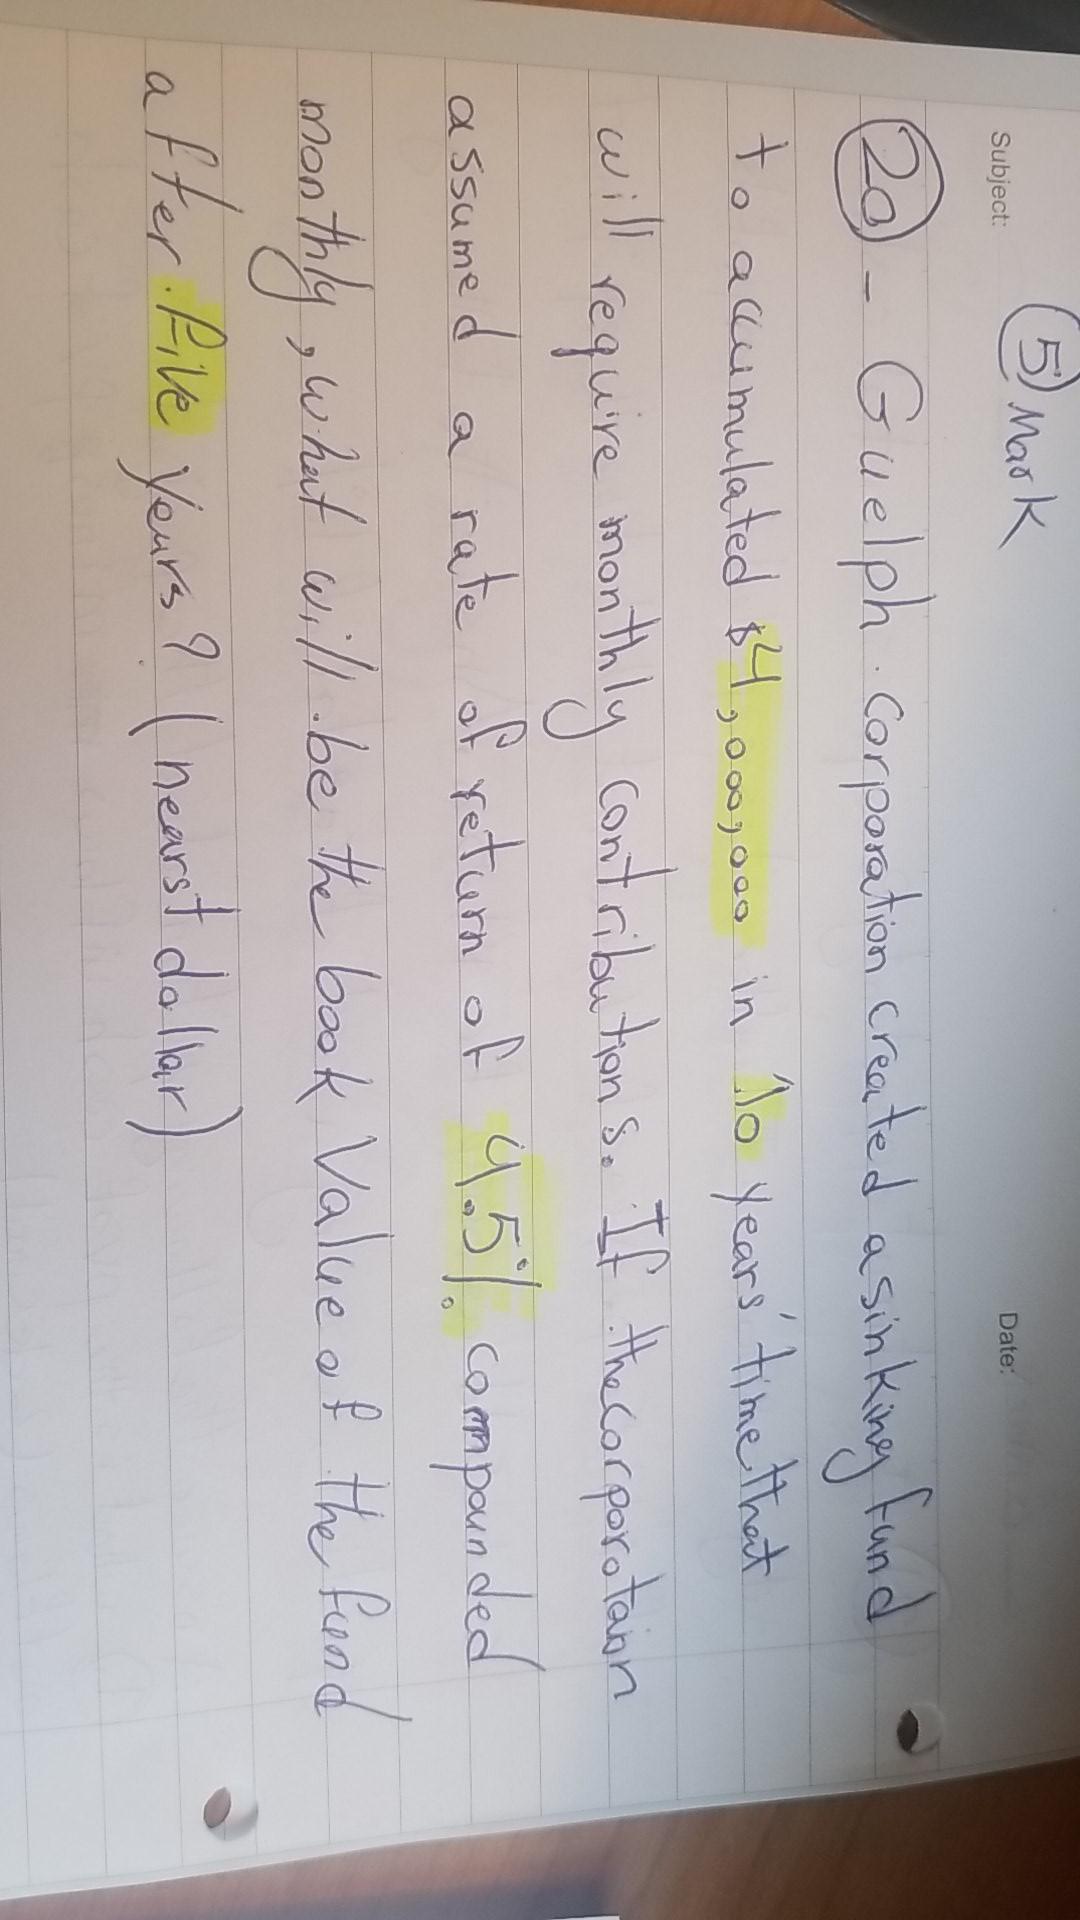 Subject: Date:
⑤ Mark
2a - Guelph corporation created a sinking fund
to accumulated $4,000,000 in 10 years' time that
will require monthly contributions. If the corporotain
assumed a rate of return of 4.5% compounded
monthly, what will be the book value of the fund
after five years? (nearst dollar)